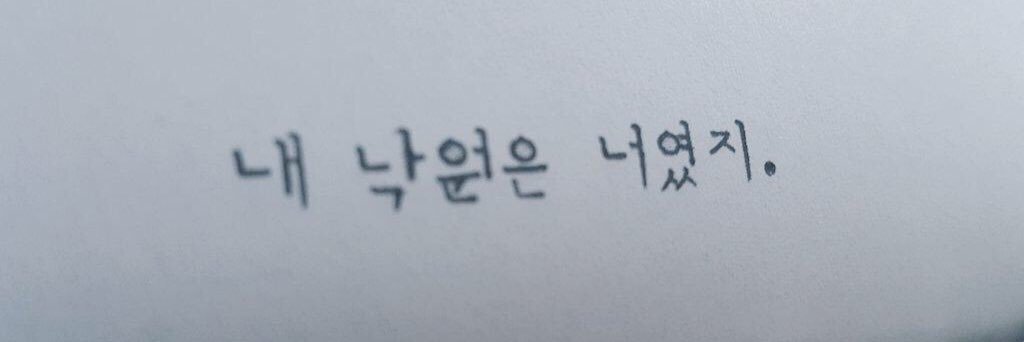 내 낙원은 너였지.